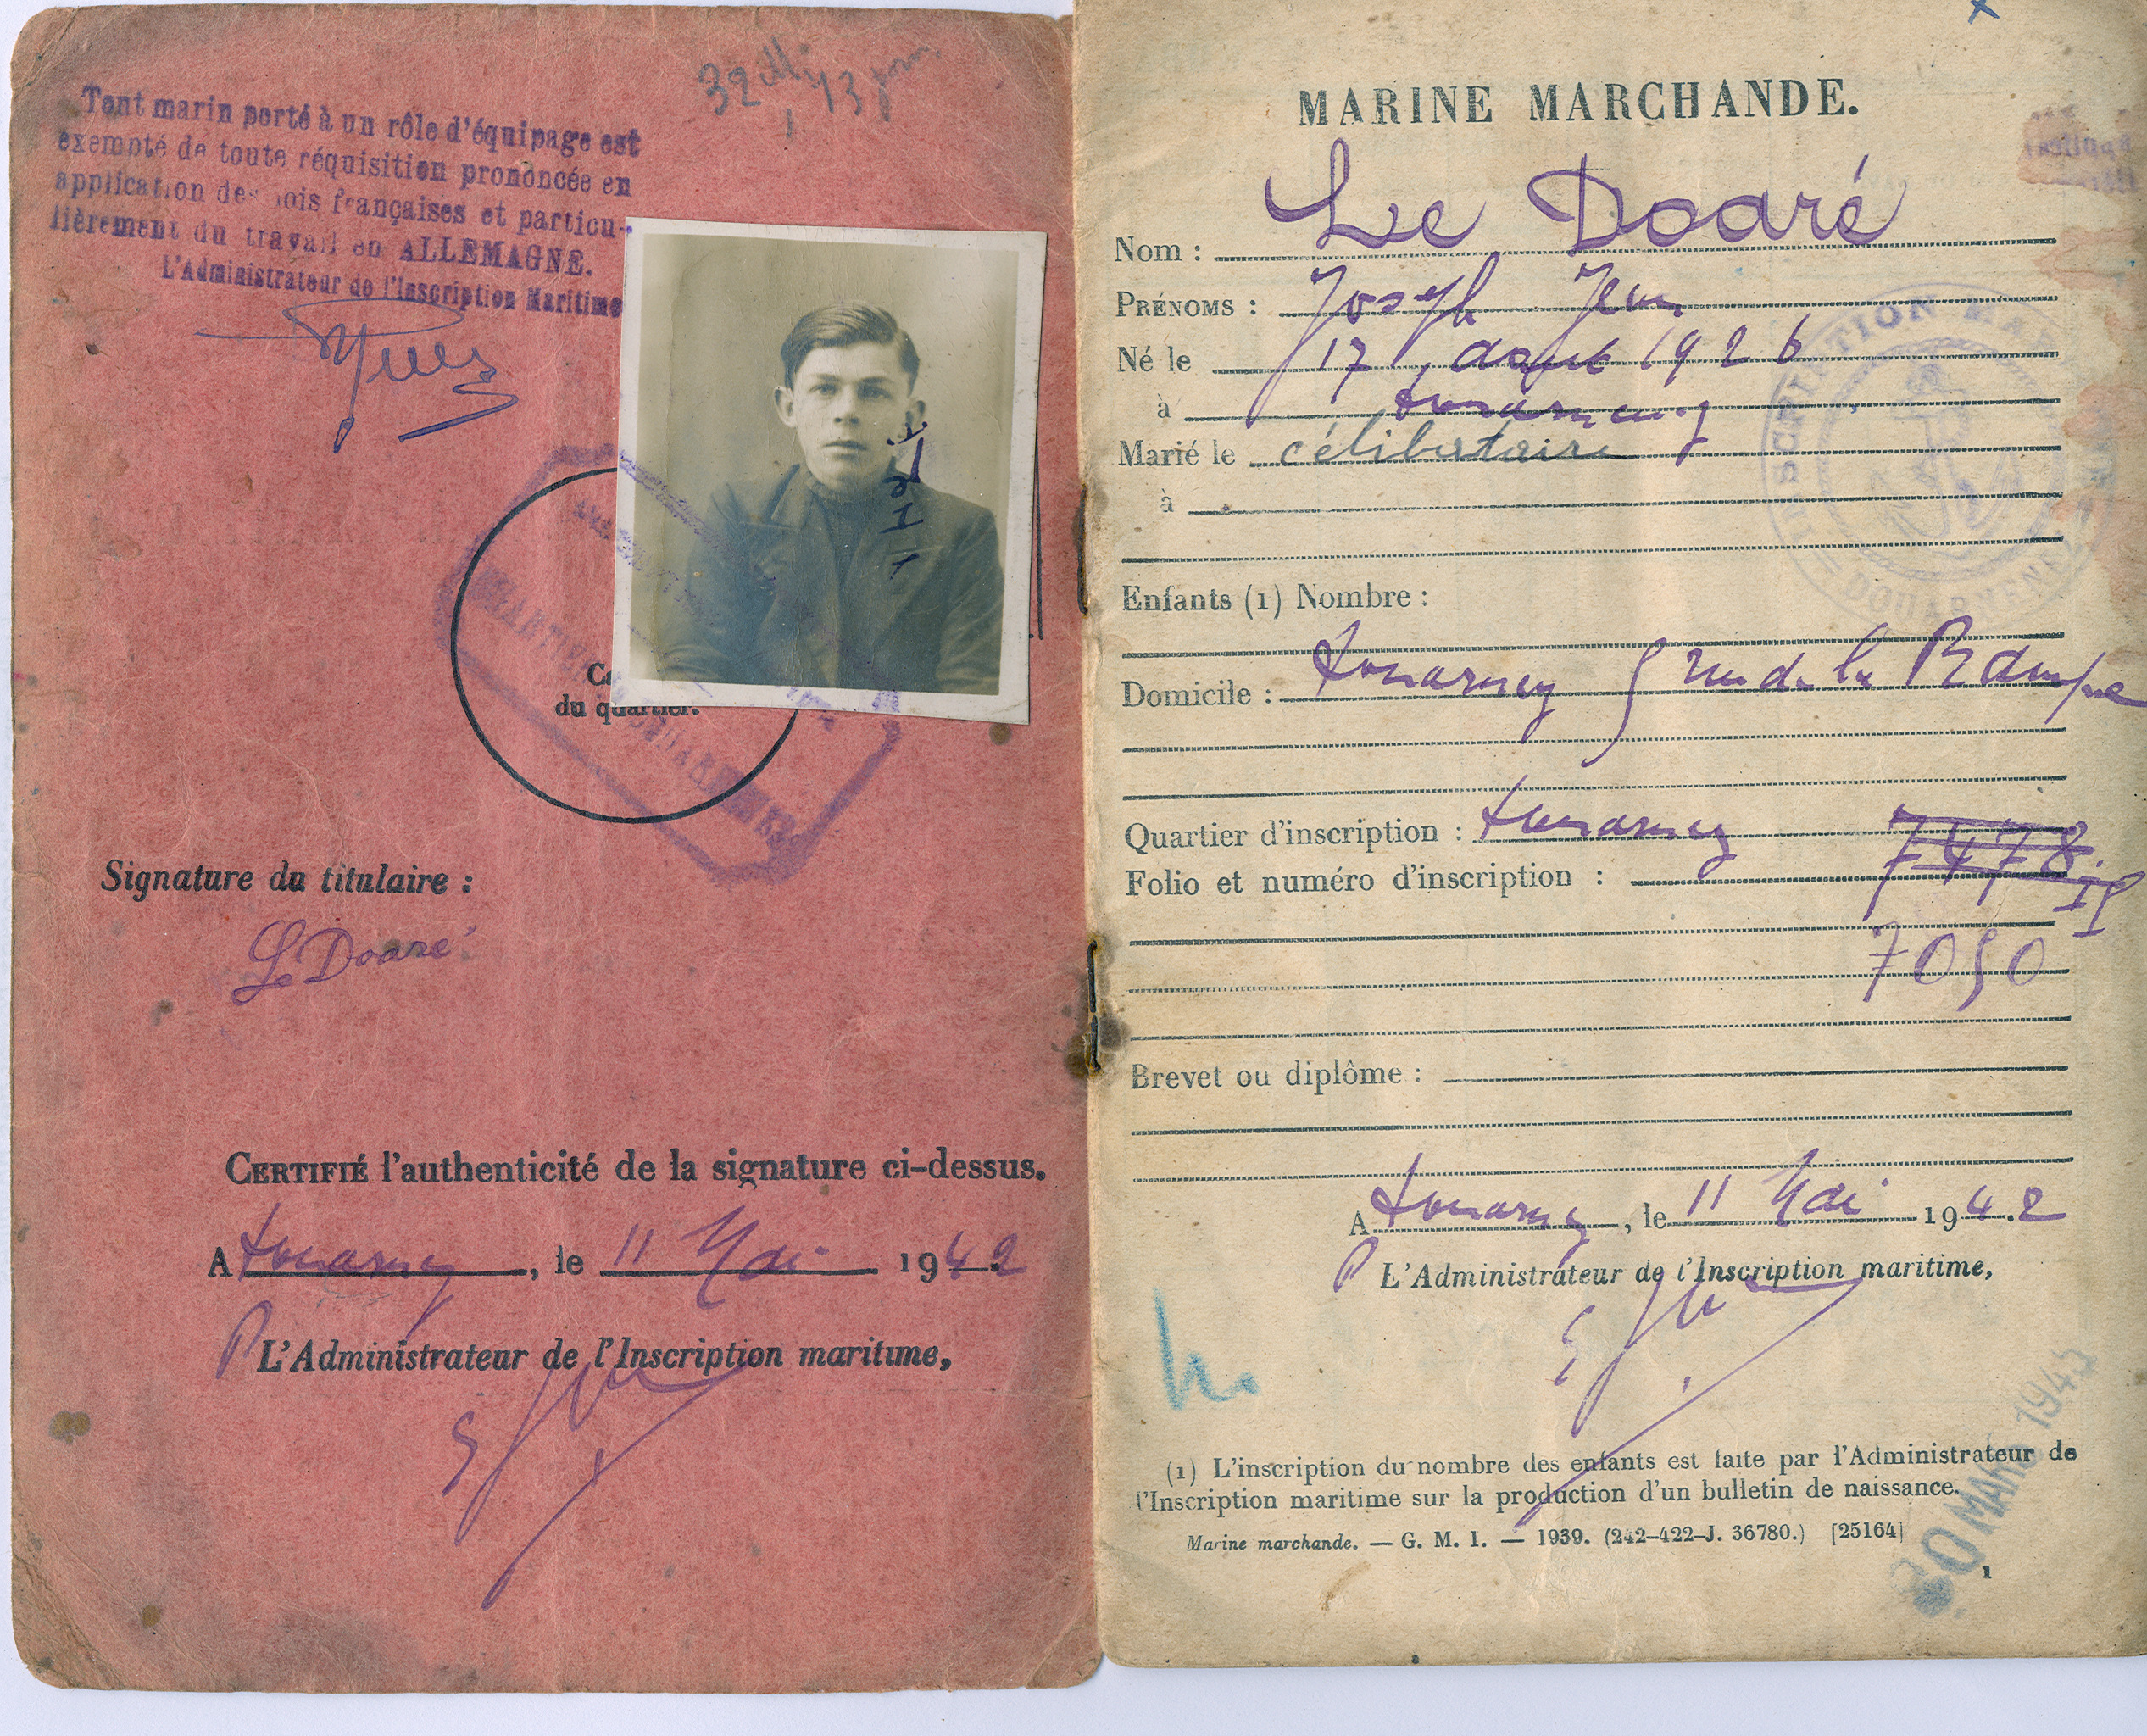 Tout marin porté à un rôle d'équipage est
exempté de toute réquisition prononcée en
application des lois françaises et particu-
lièrement du travail en ALLEMAGNE.
L'Administrateur de l'Inscription Maritime
du quartier.
Signature du titulaire :
Le Doaré
CERTIFIÉ l'authenticité de la signature ci-dessus.
A Douarnenez, le 11 Mai 1942
P L'Administrateur de l'Inscription maritime,
MARINE MARCHANDE.
Nom : Le Doaré
PRÉNOMS : Joseph Jean
Né le 17 août 1926
à Douarnenez
Marié le célibataire
à
Enfants (1) Nombre :
Domicile : Douarnenez 5 rue de la Rampe
Quartier d'inscription : Douarnenez
Folio et numéro d'inscription : 7478.
7050
Brevet ou diplôme :
A Douarnenez, le 11 Mai 1942
P L'Administrateur de l'Inscription maritime,
(1) L'inscription du nombre des enfants est faite par l'Administrateur de
l'Inscription maritime sur la production d'un bulletin de naissance.
Marine marchande. — G. M. 1. — 1939. (242-422-J. 36780.) [25164]
1
INSCRIPTION MARITIME
DOUARNENEZ
MARS 1945